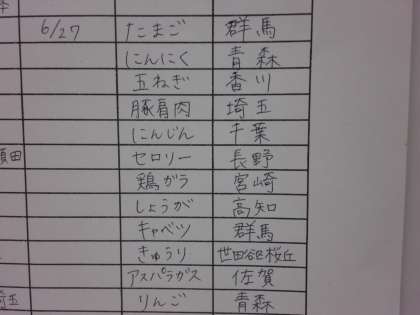 6/27 たまご 群馬
にんにく 青森
玉ねぎ 香川
豚肩肉 埼玉
にんじん 千葉
セロリー 長野
鶏ガラ 宮崎
しょうが 高知
キャベツ 群馬
きゅうり 世田谷区桜丘
アスパラガス 佐賀
りんご 青森